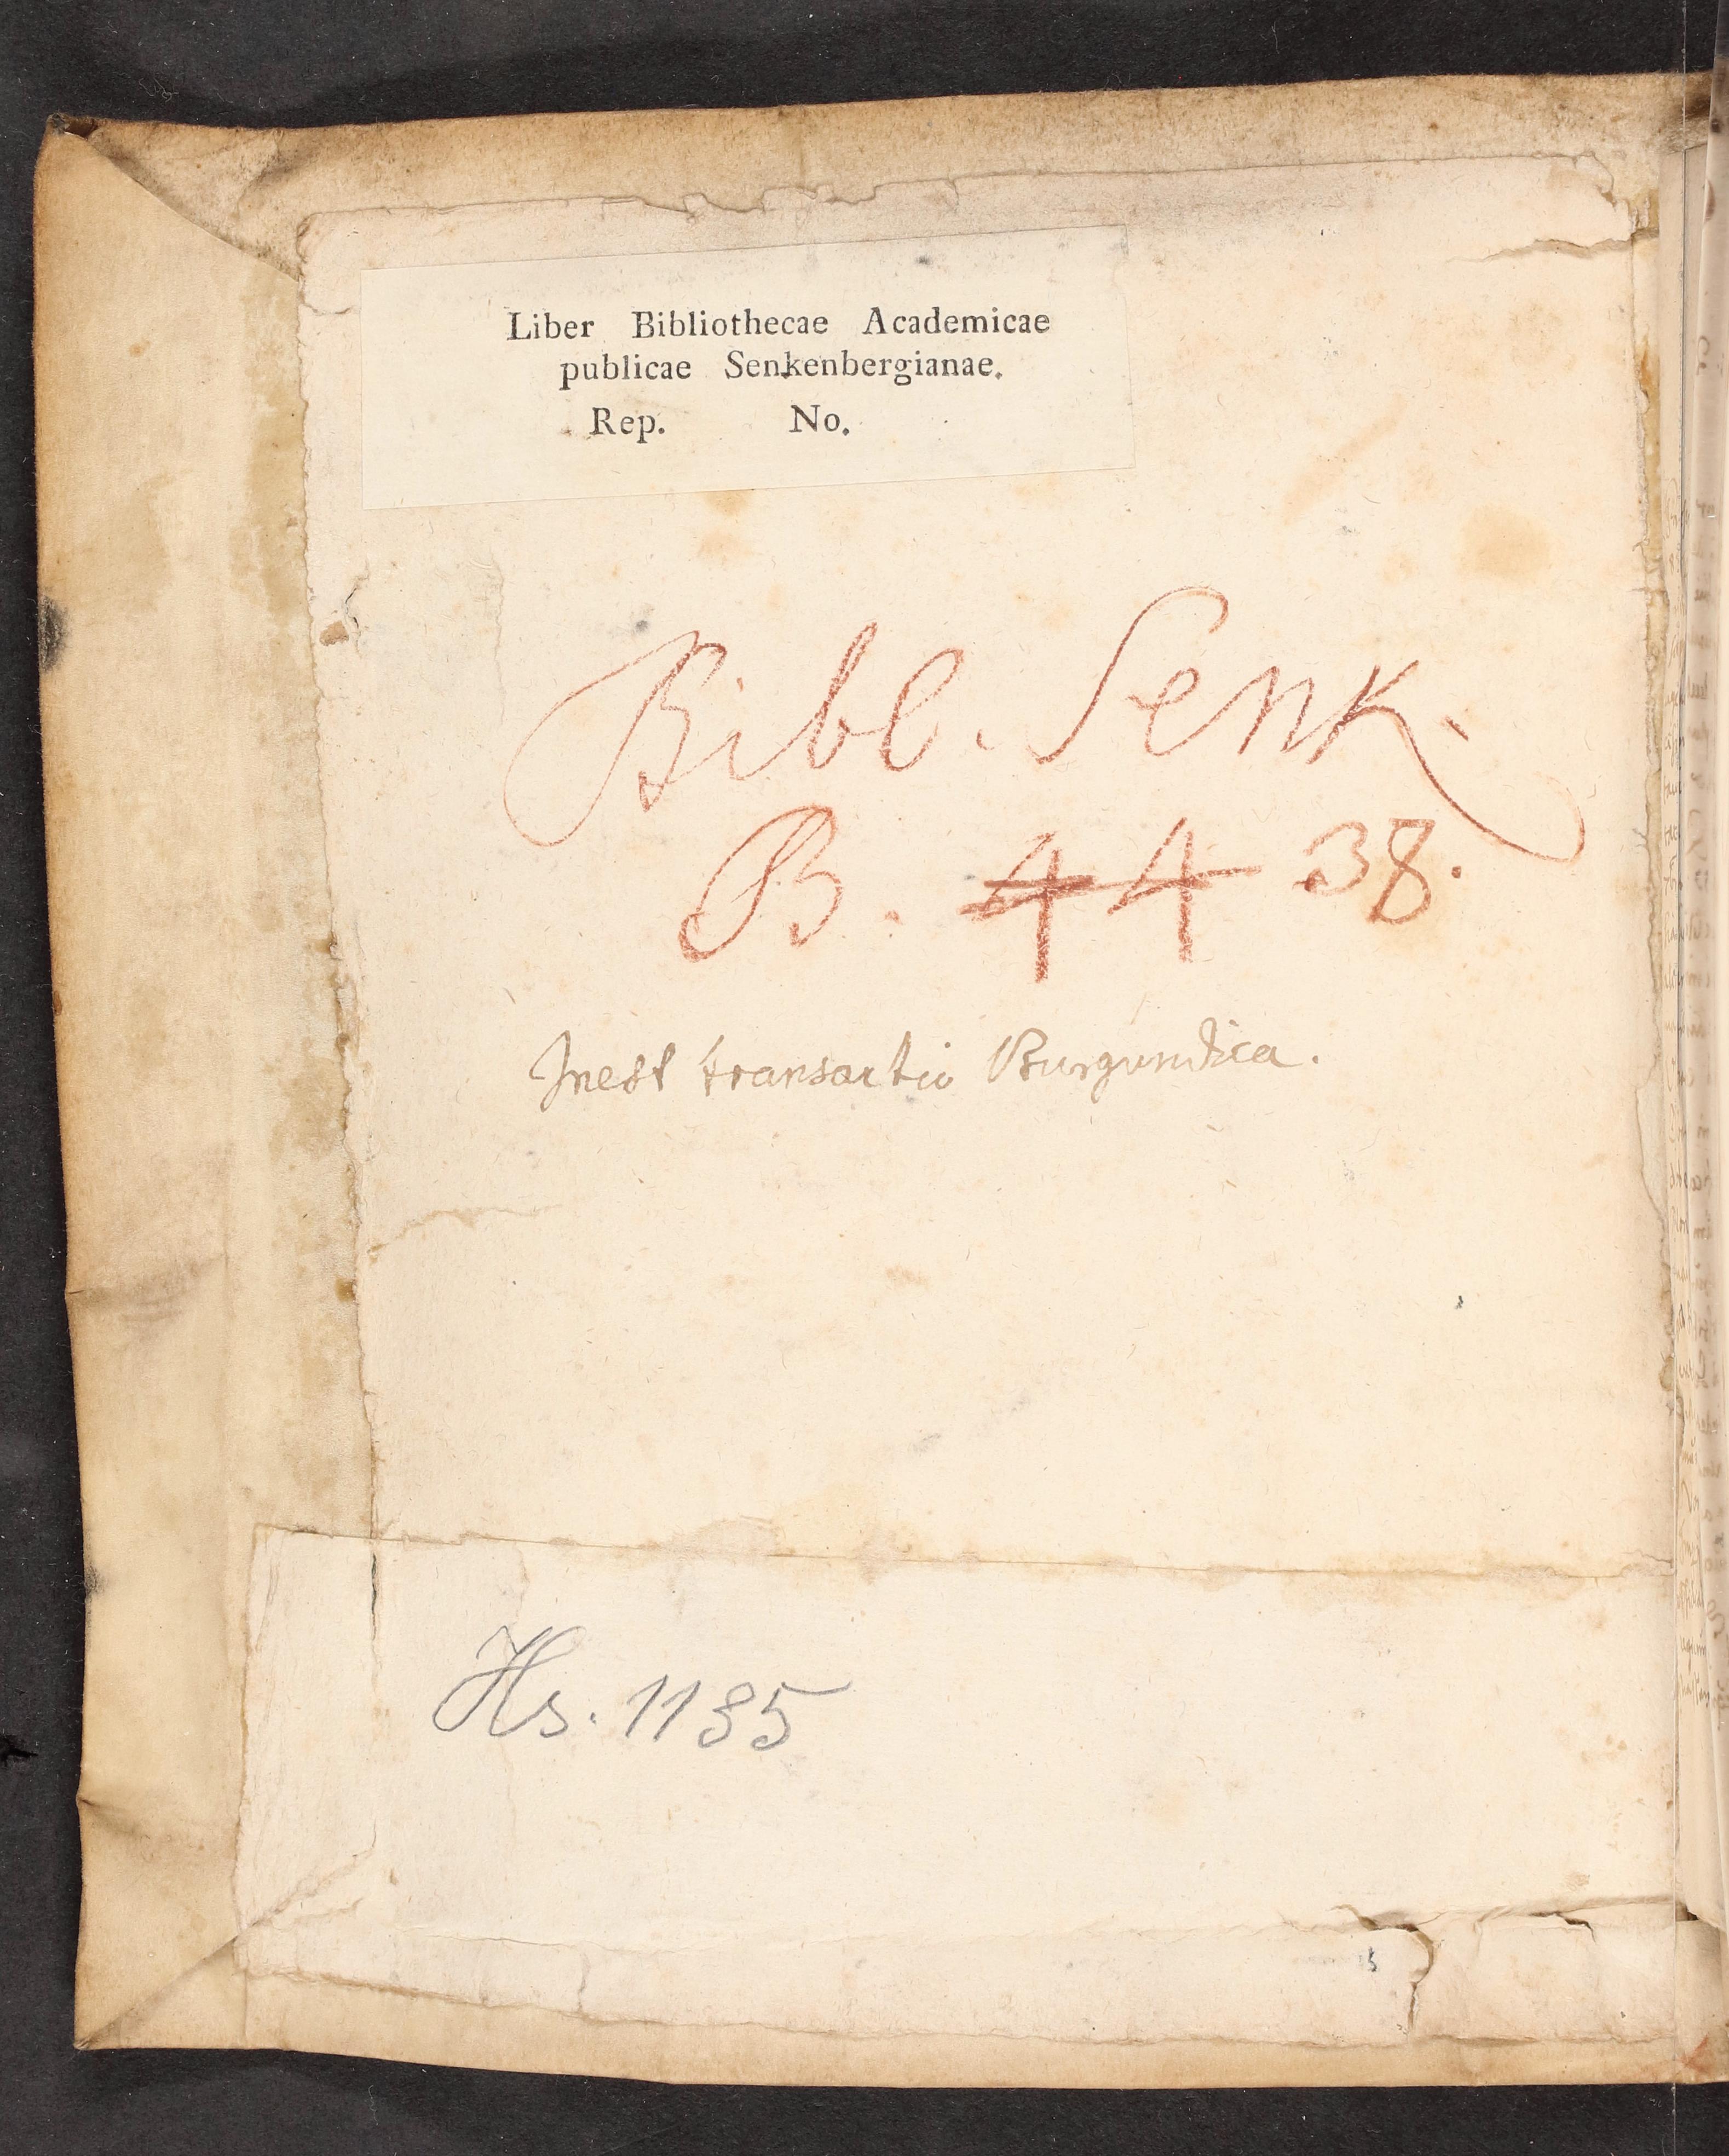 Liber Bibliothecae Academicae
publicae Senkenbergianae.
Rep. No.
Bibl. Senk.
B. 44 38.
Inest transactio Burgundica.
Hs. 1135